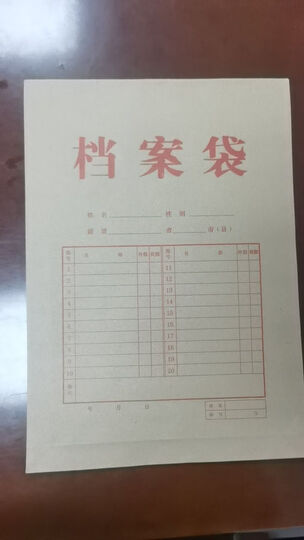 档案袋
姓名 性别
籍贯 省 市(县)
编号 名 称 件数 页数 编号 名 称 件数 页数
1 11
2 12
3 13
4 14
5 15
6 16
7 17
8 18
9 19
10 20
备注
年 月 日